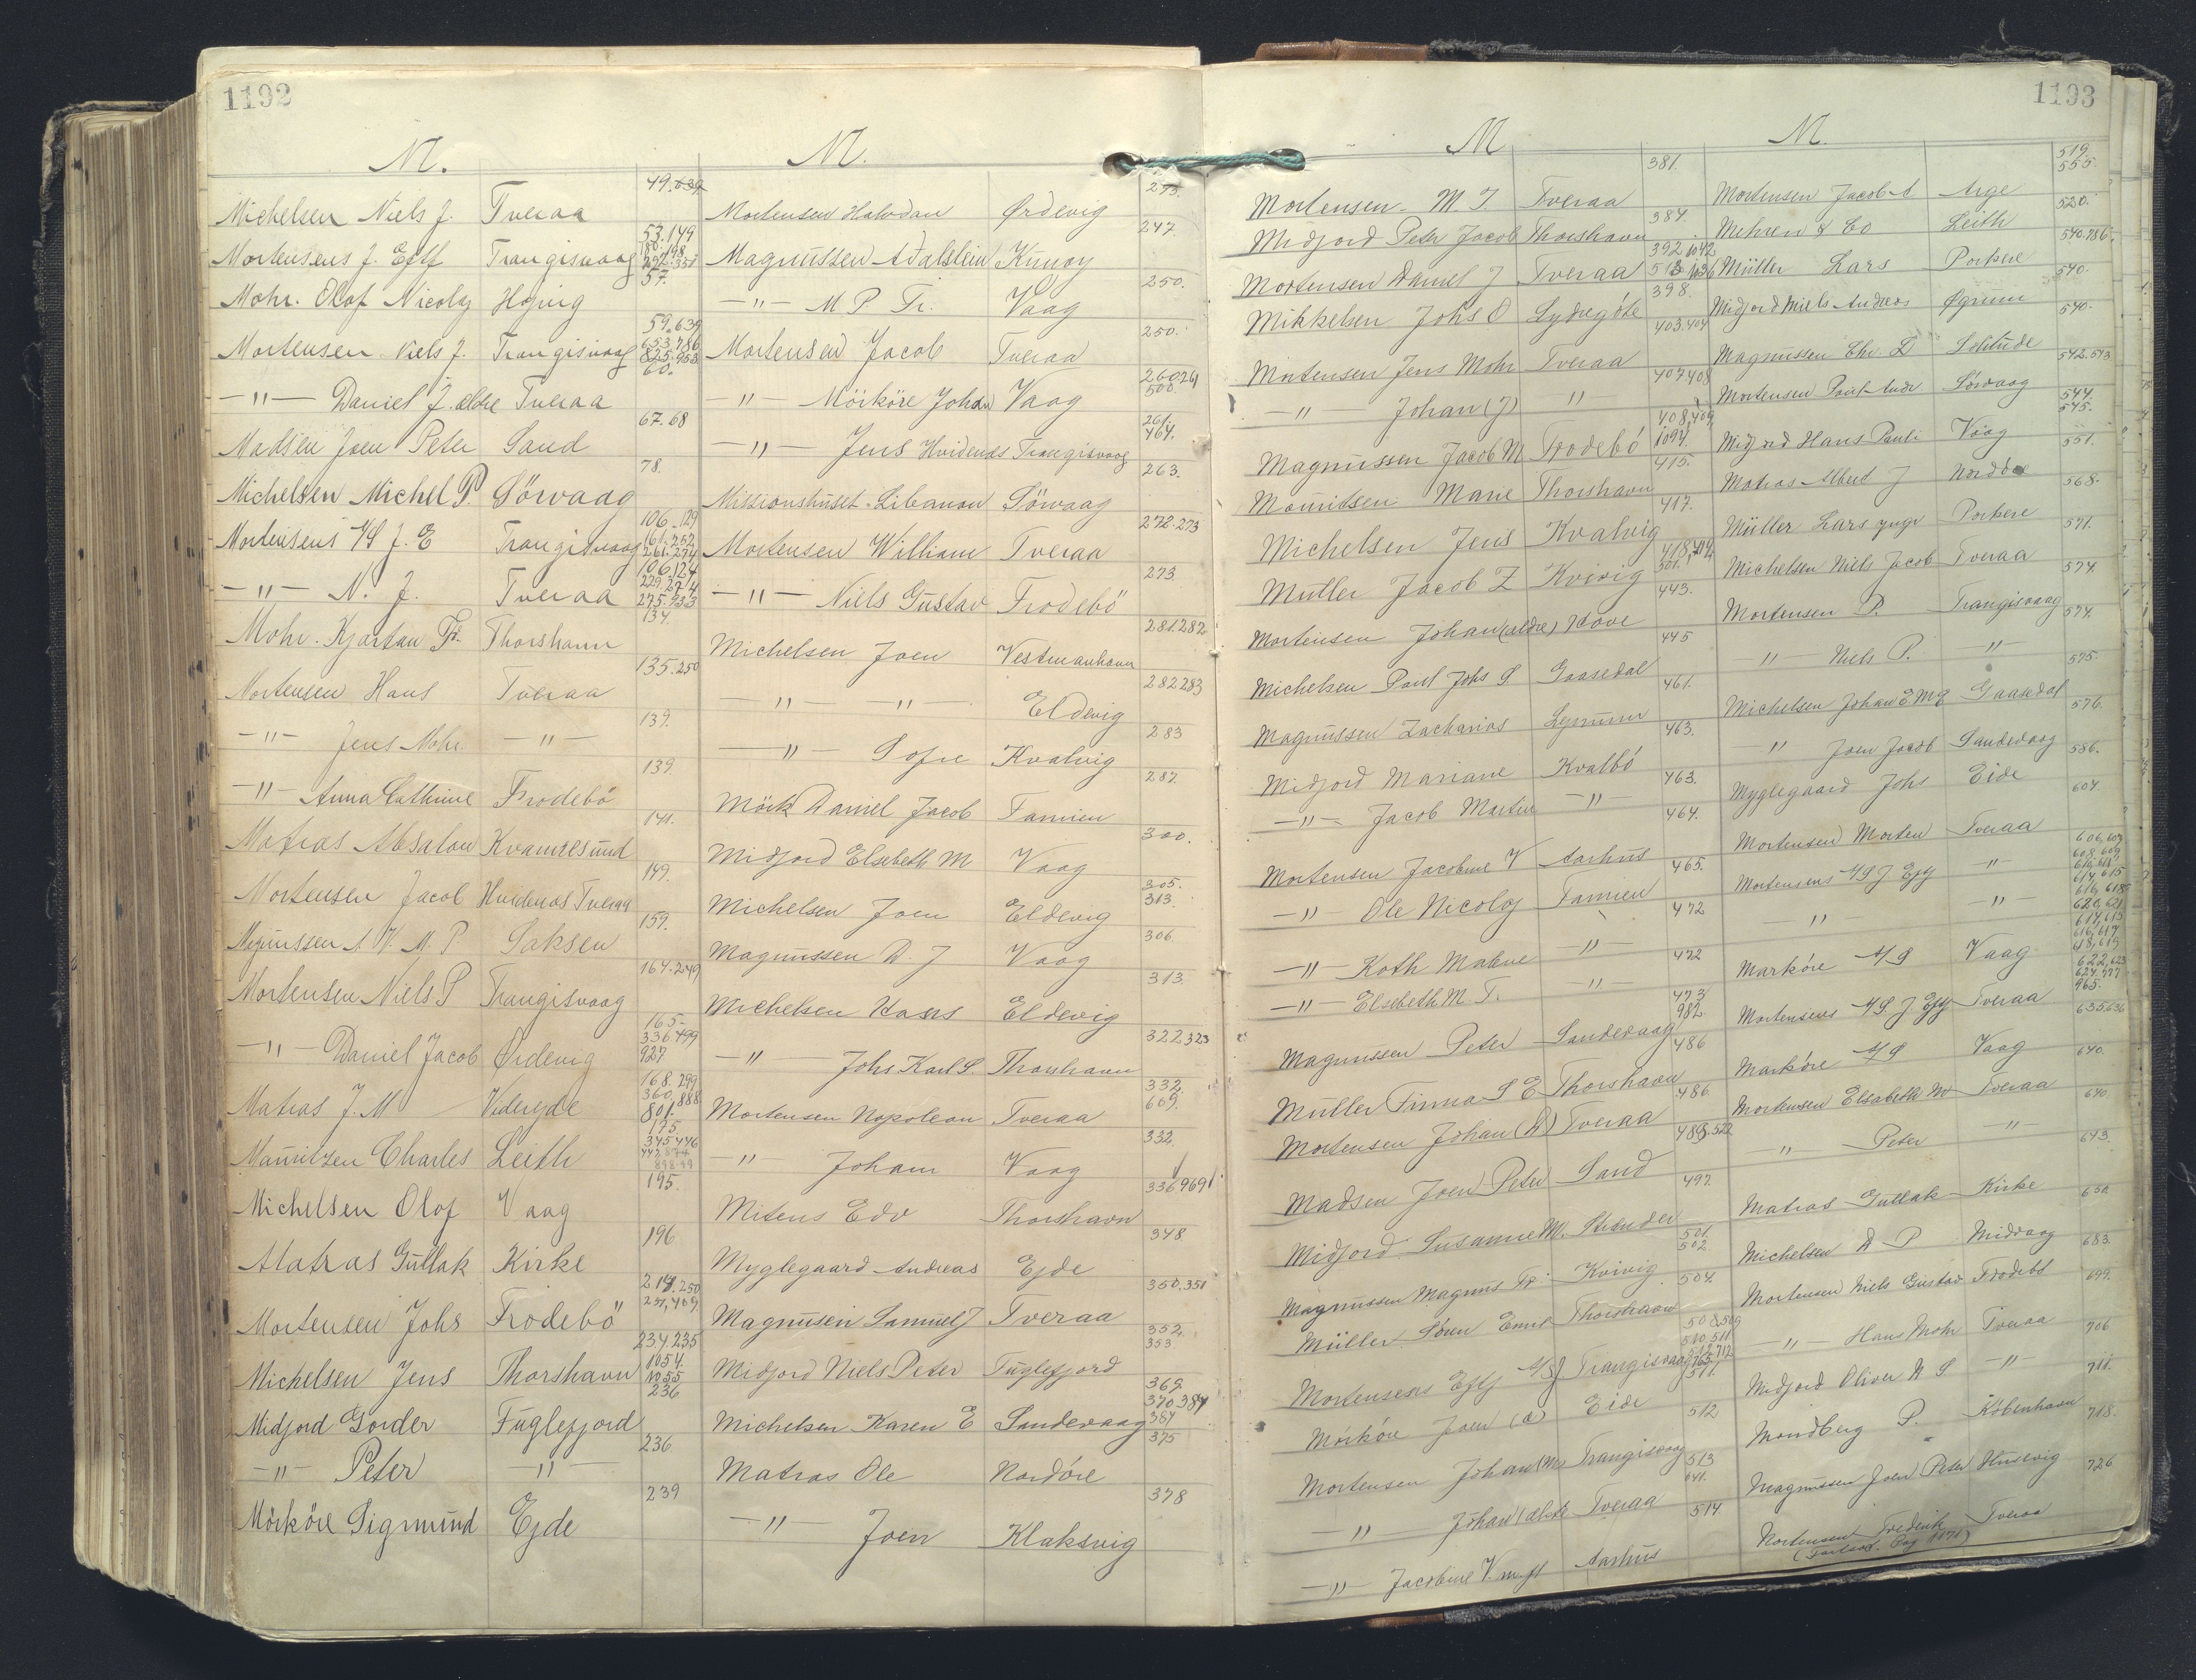 1192
M.
Michelsen Niels J. Tveraa 49.639
Mortensens J. Eftf Trangisvaag 53.149
Mohr. Olof Nicolaj Hojvig 57.
Mortensen Niels J. Trangisvaag 59.639 653.786 825.953
-"- Daniel J. ældre Tveraa 60.
Madsen Joen Peter Sand 67.68
Michelsen Michel P. Sörvaag 78.
Mortensens J. E Trangisvaag 106.129 161.252 261.274
-"- N. J. Tveraa 106.124
Mohr. Kjartan Fr. Thorshavn 134.
Mortensen Hans Tveraa 135.250
-"- Jens Mohr -"- 139.
-"- Anna Cathrine Frodebö 139.
Matras Absalon Kvannesund 141.
Mortensen Jacob Hvidenæs Tveraa 149.
Magnussen A. M. P Saksen 159.
Mortensen Niels P Trangisvaag 164.249
-"- Daniel Jacob Ördevig 165- 336 499 927
Matras J. M Videreje 168.299 360,888 801.
Mauritzen Charles Leith 175. 345 446
Michelsen Olof Vaag 195.
Matras Gullak Kirke 196
Mortensen Johs Frodebö
Michelsen Jens Thorshavn 234.235 1054. 1055
Midjord Gorder Fuglefjord 236
-"- Peter -"- 236.
Mörköre Sigmund Ejde 239
M.
Mortensen Halvdan Ørdevig 293.
Magnussen Adalstein Kunoy 247.
-"- M P Fr. Vaag 250.
Mortensen Jacob Tveraa 250.
-"- Mörköre Johan Vaag 260 261 500
-"- Jens Hvidenæs Trangisvaag 261. 464.
Missionshuset. Libanon Sörvaag 263.
Mortensen William Tveraa 272.273
-"- Niels Gustav Frodebö 273
Michelsen Joen Vestmanhavn 281.282
-"- -"- Eldevig 282 283
-"- Sofie Kvalvig 283
Mörk Daniel Jacob Famien 287.
Midjord Elsebeth M Vaag 300.
Michelsen Joen Eldevig 305. 313.
Magnussen D. J Vaag 306
Michelsen Hans Eldevig 313.
-"- Johs Karl S. Thorshavn 322 323
Mortensen Napoleon Tveraa 332 609.
-"- Johan Vaag 332.
Mitens Edv Thorshavn 336 969
Myglegaard Andreas Ejde 348
Magnusen Samuel J Tveraa 350.351
Midjord Niels Peter Fuglefjord 352. 353.
Michelsen Karen E Sandevaag 369. 370 384 387
Matras Ole Nordöre 375
-"- Joen Klaksvig 378
1193
M
Mortensen M. J. Tveraa 381.
Midjord Peter Jacob Thorshavn 384.
Mortensen Daniel J Tveraa 392.1042
Mikkelsen Johs O Sydregöte 398.
Mortensen Jens Mohr Tveraa 403.404
-"- Johan (J) " 407 408
Magnussen Jacob M Frodebö 408,409. 1094.
Mouritsen Marie Thorshavn 415.
Michelsen Jens Kvalvig 417.
Müller Jacob Z Kvivig
Mortensen Johan (ældre) Hove 443.
Michelsen Paul Johs S. Gaasedal 445
Magnussen Zacharias Lynum 461.
Midjord Mariane Kvalbö 463.
-"- Jacob Martin -"- 463.
Mortensen Jacobine V Aarhus 464.
-"- Ole Nicolaj Famien 465.
-"- Kath Malene -"- 472
-"- Elsebeth M. T. -"- 472
Magnussen Peter Sandevaag 473 982.
Müller Finna S E Thorshavn 486
Mortensen Johan (D) Tveraa 486.
Madsen Joen Peter Sand
Midjord Susanne M. Strender 497.
Magnussen Magnus Fr. Kvivig 501. 502
Müller Sören Emil Thorshavn 504.
Mortensens Eftf Trangisvaag 508.509 510.511
Mörköre Joen (a) Eide 511.
Mortensen Johan (M) Trangisvaag 512
-"- Johan (ældre) Tveraa 513 641.
-"- Jacobine V. Aarhus 514
M.
Mortensen Jacob A Arge 519. 555.
Mehren & Co Leith 520.
Müller Lars Porkere 540.786.
Midjord Niels Andreas Ögrum 540.
Magnussen Chr. D Solitude 540.
Mortensen Poul Andr Sörvaag 542.543
Midjord Hans Pauli Vaag 544. 545.
Matras Albert J Norddöe 551.
Müller Lars yngr Porkere 568.
Michelsen Niels Jacob Tveraa 571.
Mortensen P. Trangisvaag 574.
" Niels P. -"- 574.
Michelsen Johan E M G Gaasedal 575.
" Joen Jacob Sandevaag 576.
Myglegaard Johs Eide 586.
Mortensen Morten Tveraa 604.
Mortensens J Eftf -"- 606,607 608,609
" -"- 616,618 620,621
Mörköre Vaag 622,623
Mortensens J Eftf Tveraa 965.
Mörköre Vaag 635,636
Mortensen Elsabeth M Tveraa 640.
-"- Peter " 640
Matras Gullak Kirke 643.
Michelsen D P Midvaag 650.
Mortensen Niels Gustav Frodebö 683.
-"- Hans Mohr Tveraa 699.
Midjord Oliver D S -"- 706
Mondberg P. Köbenhavn 711.
Magnussen Joen Peter Husevig 718.
Mortensen Frederik Tveraa 726
(Fortsat. Pag 1171)